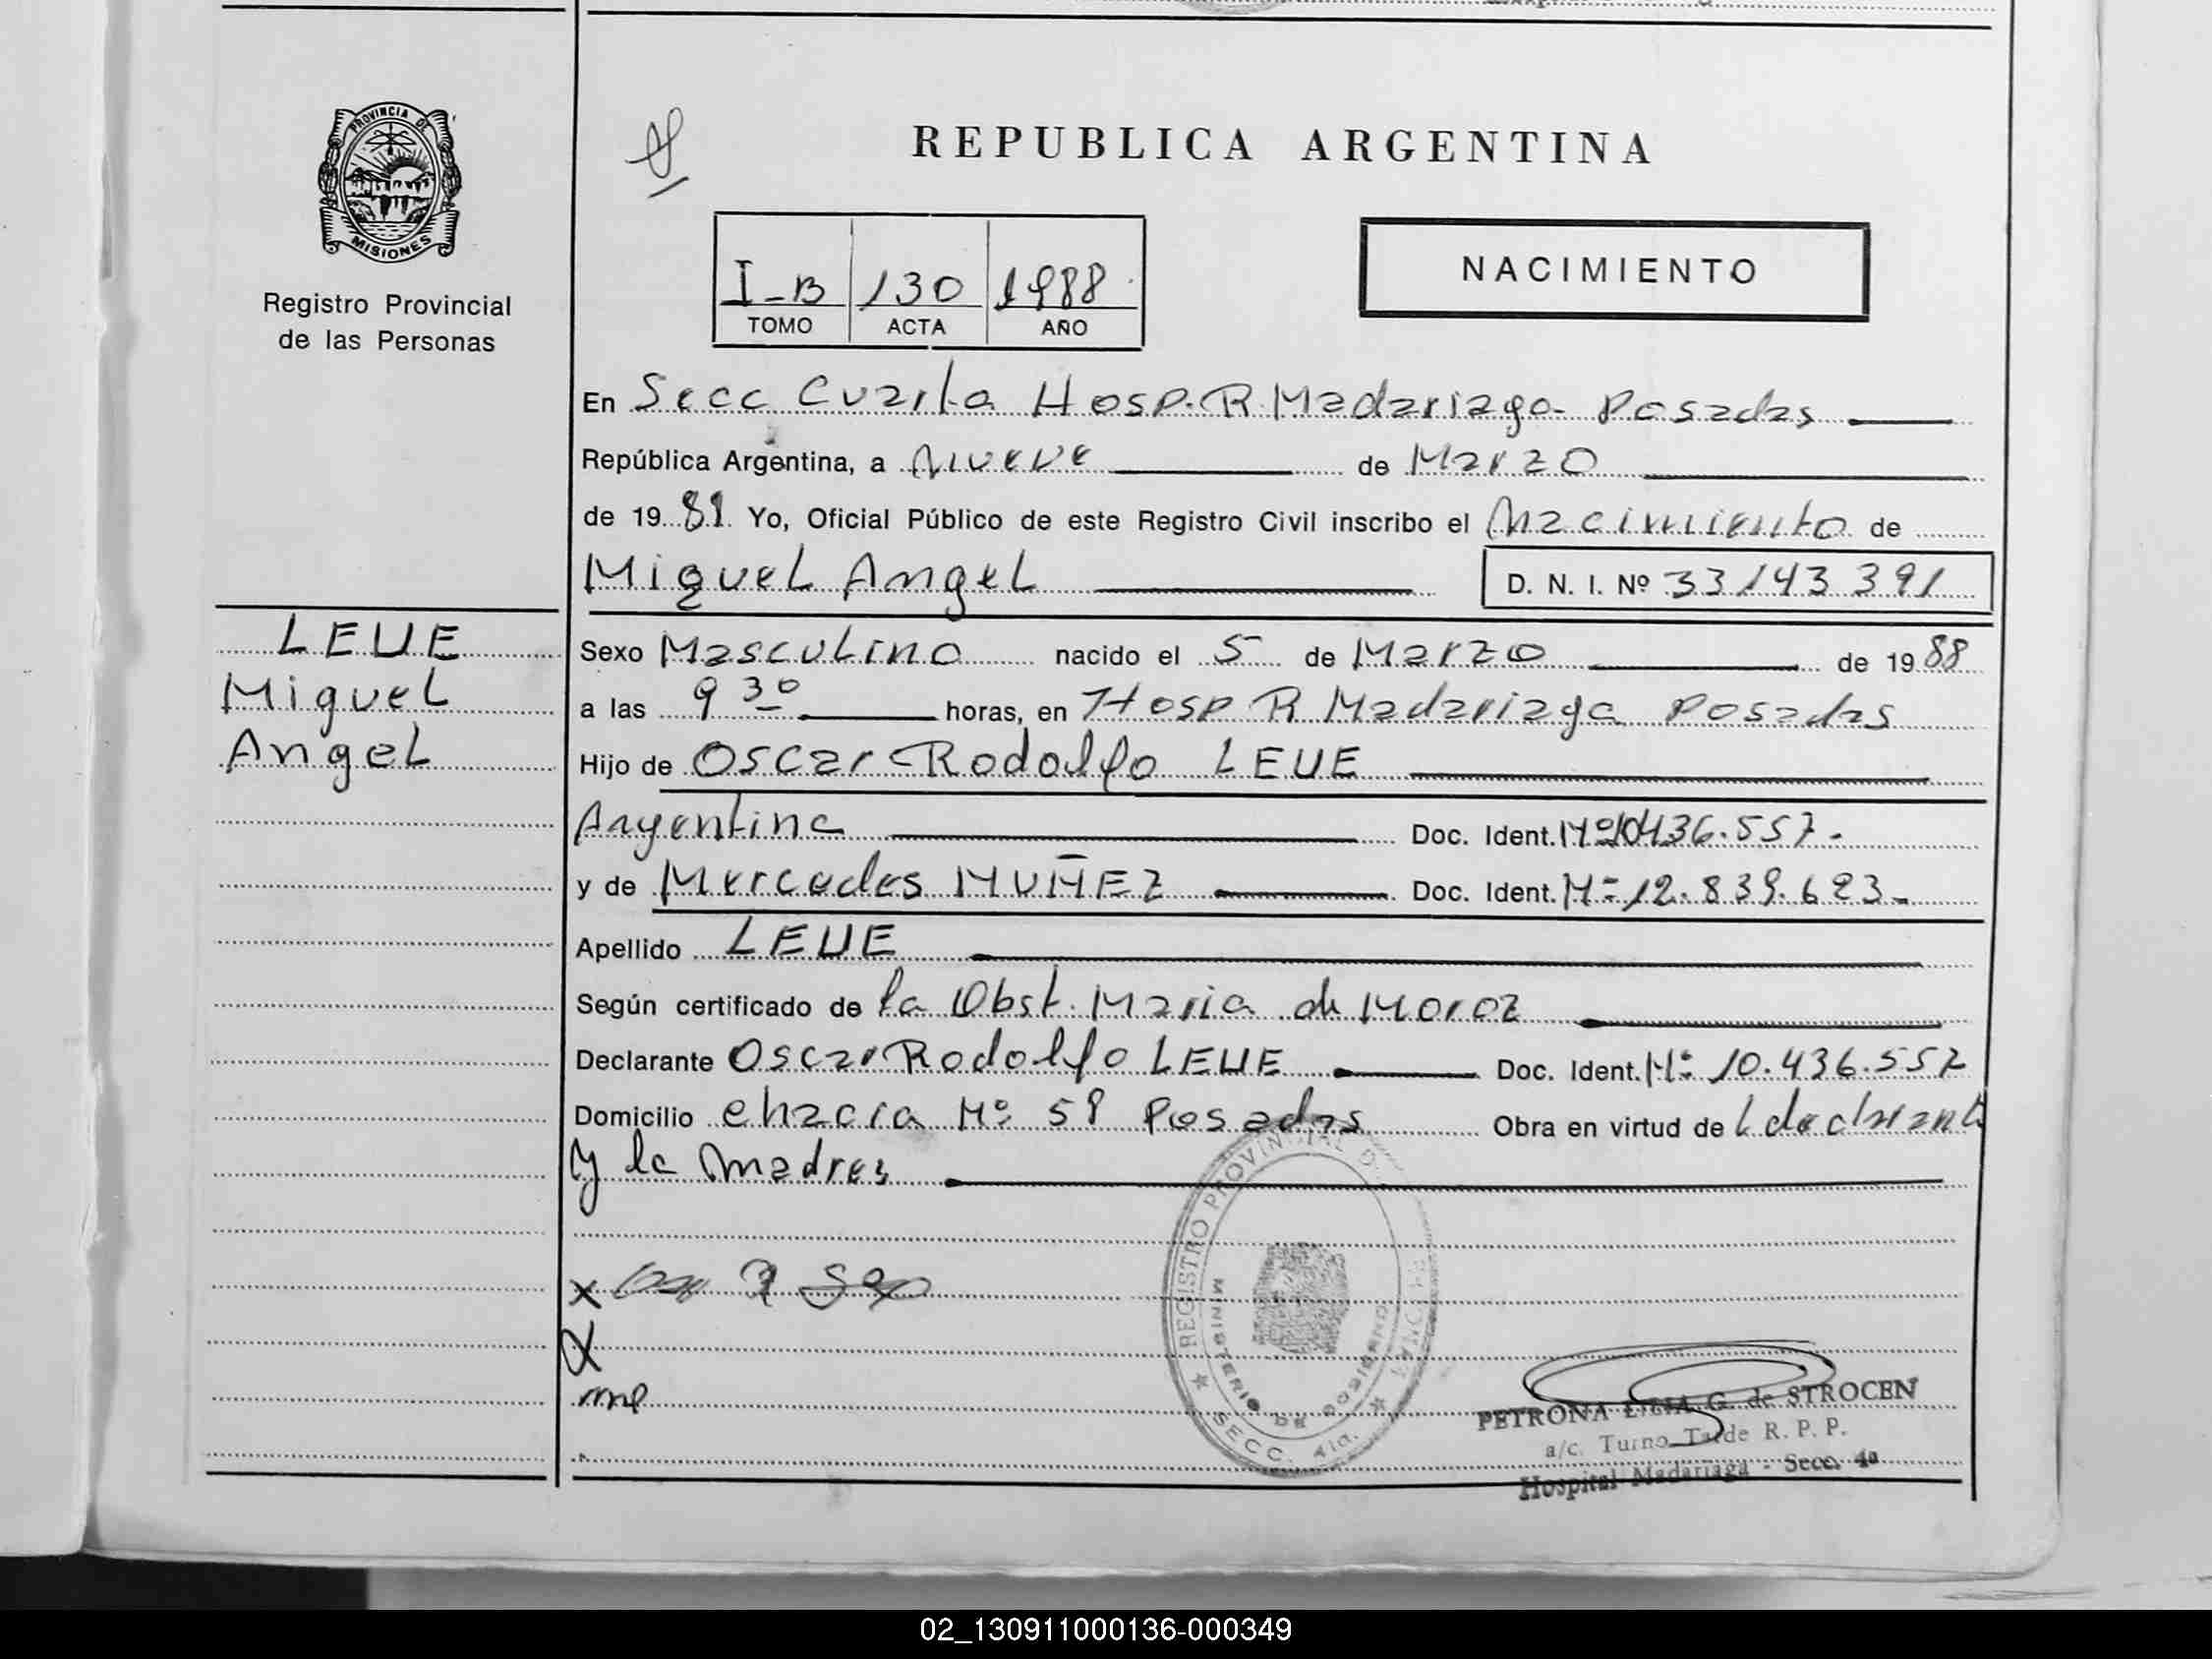 PROVINCIA DE
MISIONES
Registro Provincial
de las Personas
REPUBLICA ARGENTINA
I-B 130 1988
TOMO ACTA AÑO
NACIMIENTO
En Secc Cuarta Hosp. R Madariaga Posadas
República Argentina, a Nueve de Marzo
de 19 88 Yo, Oficial Público de este Registro Civil inscribo el Nacimiento de
Miguel Angel D. N. I. Nº 33143391
LEUE
Miguel
Angel
Sexo Masculino nacido el 5 de Marzo de 1988
a las 9 30 horas, en Hosp R Madariaga Posadas
Hijo de Oscar Rodolfo LEUE
Argentina Doc. Ident. Nº 10436.557.-
y de Mercedes MUÑEZ Doc. Ident. Nº 12.839.623.-
Apellido LEUE
Según certificado de la Obst. Maria de Moroz
Declarante Oscar Rodolfo LEUE Doc. Ident. Nº 10.436.557
Domicilio chacra Nº 58 Posadas Obra en virtud de
y la madre
REGISTRO PROVINCIAL
MINISTERIO DE GOBIERNO
SECC. 4ta.
PETRONA LILIA G. de STROCEN
a/c. Turno Tarde R. P. P.
Hospital Madariaga - Secc. 4a
02_130911000136-000349